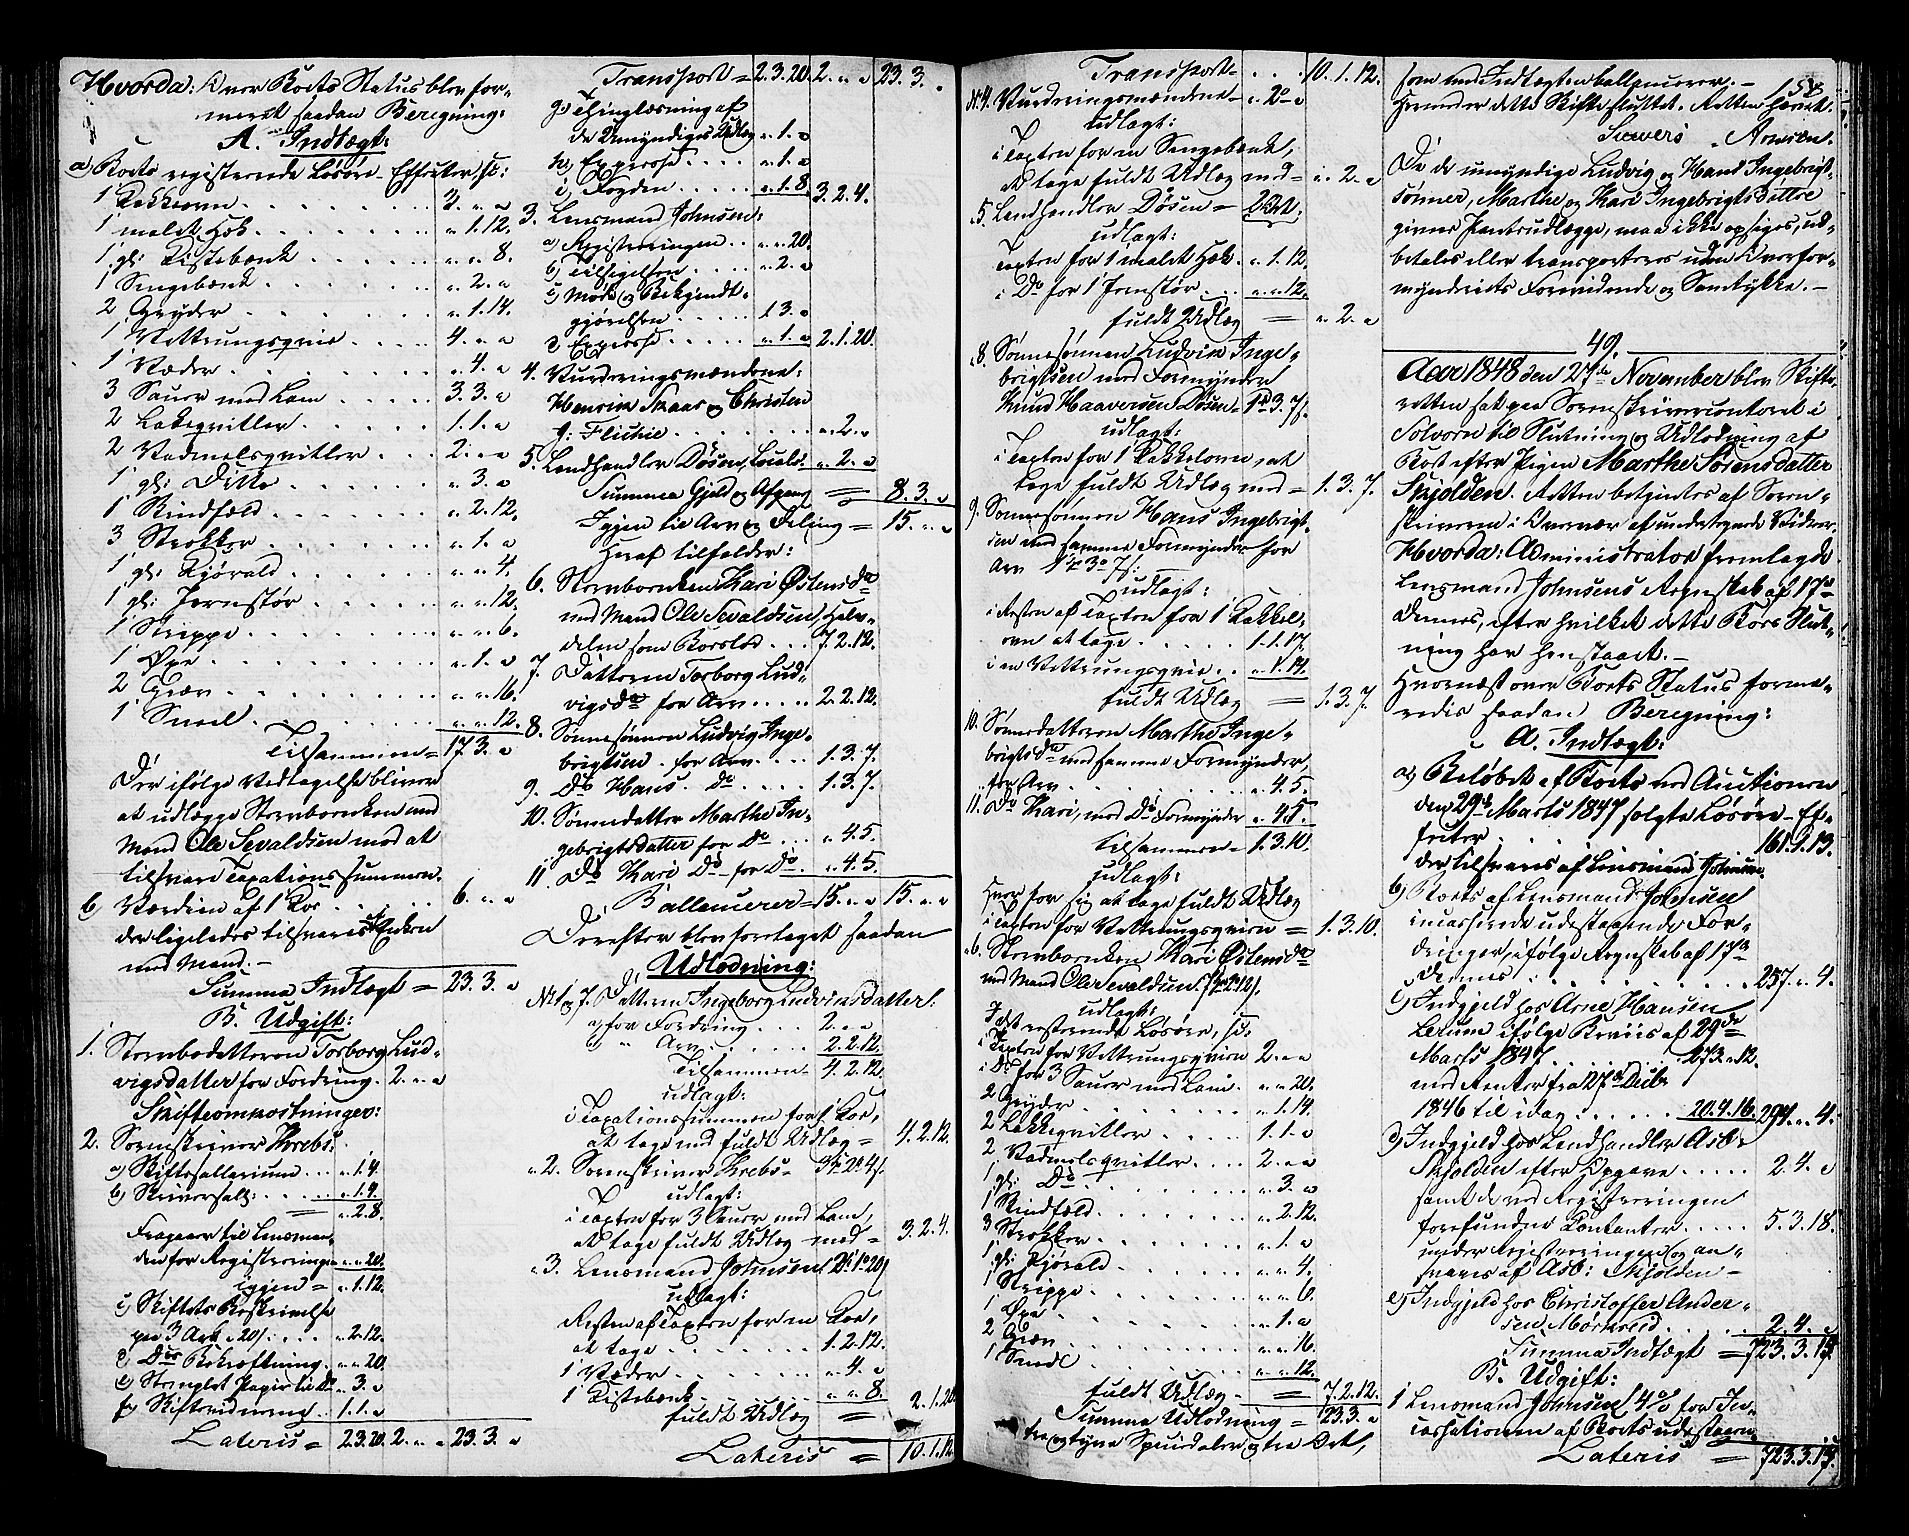 Hvorda: Over Boets Status blev for-
meret saadan Beregning:
A. Indtægt:
a) Boets registrerede Løsøre-Effecter, sc:
1 Kakkelovn . . . 3. " "
1 malet Hek . . . " 1. 12.
1 gl: Kistebænk . . . " " 8.
1 Sengebænk . . . " 2. "
2 Gryder . . . " 1. 14.
1 Vettrungsqvie . . . 4. " "
1 Væder . . . " 4. "
3 Sauer med Lam . . . 3. 3. "
2 Lakeqvitler . . . 1. 1. "
2 Vadmelsqvitler . . . 2. " "
1 gl: Ditto . . . " 3. "
1 Skindfæld . . . " 2. 12.
3 Strokker . . . " 1. "
1 gl: Kjørald . . . " " 4.
1 gl: Jernstør . . . " " 12.
1 Skreppe . . . " " 6.
1 Øxe . . . " 1. "
2 Græv . . . " " 16.
1 Sneel . . . " " 12.
Tilsammen = 17. 3. "
Der ifølge Vedtagelse bliver
at udlægge Stervboenken med
Mand Ole Sevaldsen mod at
tilsvare Taxationssummen.
b) Værdien af 1 Koe . . . 6. " "
der ligeledes tilsvares Enken
med Mand. –
Summa Indtægt = 23. 3. "
B. Udgift:
1. Stervbodatteren Torborg Lud-
vigsdatter for Fordring. 2. " "
Skifteomkostninger:
2. Sorenskriver Krebs:
a) Skiftesallarium . . . " 1. 4.
b) Skriversalt: . . . " 1. 4.
" 2. 8.
Fragaaer til Lensman-
den for Registreringen " " 20.
igjen = " 1. 12.
c) Skiftets Beskrivelse
paa 3 Ark a 20 s: . . . " 2. 12.
d) Dets Bekræftning . " " 20.
e) Stemplet Papir til Do " 3. "
f) Skiftevidnerne . . 1. 1. "
Lateris = 2. 3. 20. 2. " " 23. 3. "
Transport = 2. 3. 20. 2. " " 23. 3. "
g) Thinglæsning af
de Umyndiges Udlæg " 1. "
h) Expresse . . . " 1. "
i) Fogden . . . " 1. 8. 3. 2. 4.
3. Lensmand Johnsen:
a) Registreringen . . " " 20.
b) Tilsigelsen . . . " 2. "
c) Møde og Bekjendt-
gjørelsen . . . 1. 3. "
d) Expresse . . . " 1. " 2. 1. 20.
4. Vurderingsmændene:
Henrik Skaar og Christen
J: Flichie . . . " 2. "
5. Landhandler Døsen, Locale: " 2. "
Summa Gjeld og Afgang = 8. 3. "
Igjen til Arv og Deling = 15. " "
Heraf tilfalder:
6. Stervboenken Kari Østensdr
med Mand Ole Sevaldsen, Halv-
delen som Boeslod . . . 7. 2. 12.
7. Datteren Torborg Lud-
vigsdr for Arv . . . 2. 2. 12.
8. Sønnesønnen Ludvig Inge-
brigtsen . for Arv . . . 1. 3. 7.
9. Do Hans. Do . . . 1. 3. 7.
10. Sønnedatter Marthe In-
gebrigtsdatter for Do . . . " 4. 5.
11. Do Kari Do for Do . . " 4. 5.
Ballencerer = 15. " " 15. " "
Derefter blev foretaget saadan
Udlodning:
No 1 og 7. Datteren Ingeborg Ludvigsdatter.
a) for Fordring . . . 2. " "
b) " Arv . . . 2. 2. 12.
Tilsammen = 4. 2. 12.
udlagt:
i Taxationssummen for 1 Koe,
at tage med fuldt Udlæg = 4. 2. 12.
" 2. Sorenskriver Krebs = 3 2 4
udlagt:
i Taxten for 3 Sauer med Lam,
at tage fuldt Udlæg med = 3. 2. 4.
" 3. Lensmand Johnsen 2 1 20
udlagt:
Resten af Taxten for en Koe,
at tage . . . 1. 2. 12.
1 Væder . . . " 4. "
1 Kistebænk . . . " " 8.
fuldt Udlæg = 2. 1. 20.
Lateris = 10. 1. 12.
Transport . . . 10. 1. 12.
No 4. Vurderingsmændene – " 2 "
udlagt:
i Taxten for en Sengebænk,
at tage fuldt Udlæg med = " 2. "
" 5. Landhandler Døsen = 2 Ort:
udlagt:
Taxten for 1 malet Hek . " 1. 12.
i Do for 1 Jernstør . . " " 12.
fuldt Udlæg = " 2. "
" 8. Sønnesønnen Ludvik Inge-
brigtsen med Formynder
Knud Haaversen Døsen = 1 3. 7.
udlagt:
i Taxten for 1 Kakkelovn, at
tage fuldt Udlæg med = 1. 3. 7.
9. Sønnesønnen Hans Ingebrigt-
sen med samme Formynder for
Arv 1 3 7 s:
udlagt:
i Resten af Taxten for 1 Kakkel-
ovn at tage . . . 1. 1. 17.
i en Vettrungsqvie . . " 1. 14.
fuldt Udlæg = 1. 3. 7.
10. Sønnedatteren Marthe Inge-
brigtsdr med samme Formynder,
for Arv . . . " 4. 5.
11. Do Kari, med Do Formynder " 4. 5.
tilsammen = 1. 3. 10.
udlagt:
Hver for sig at tage fuldt Udlæg
i Taxten for Vettrungsqvien = 1. 3. 10.
" 6. Stervboenken Kari Østensdr
med Mand Ole Sevaldsen. 7 2 12
udlagt:
I det resterende Løsøre, sc:
i Taxten for Vettrungsqvien 2. " "
i Do for 3 Sauer med Lam . " " 20.
2 Gryder . . . " 1. 14.
2 Lakkeqvitler . . . 1. 1. "
2 Vadmelsqvitler . . . 2. " "
1 gl: Do . . . " 3. "
1 Skindfæld . . . " 2. 12.
3 Strokker . . . " 1. "
1 gl: Kjørald . . . " " 4.
1 Skreppe . . . " " 6.
1 Øxe . . . " 1. "
2 Græv . . . " " 16.
1 Sneel . . . " " 12.
fuldt Udlæg = 7. 2. 12.
Summa Udlodning = 23. 3. "
tre og tyve Speciedaler og tre Ort,
158
som med Indtægten ballancerer. –
Herunder dette Skifte sluttet. Retten hævet.
Sievers . Arnesen.
De de umyndige Ludvig og Hans Ingebrigt-
sønner, Marthe og Kari Ingebrigtsdøttre
givne Panteudlægge, maa ikke opsiges, ud-
betales eller transporteres uden Overfor-
mynderiets Forevidende og Samtykke. –
49.
Aar 1848 den 27de November blev Skifte-
retten sat paa Sorenskrivercontoret i
Solvorn til Slutning og Udlodning af
Boet efter Pigen Marthe Sørensdatter
Skjolden. Retten betjentes af Soren-
skriveren i Overvær af undertegnede Vidner.
Hvorda: Administrator fremlagde
Lensmand Johnsens Regnskab af 17de
dennes, efter hvilket dette Boes Slut-
ning har henstaaet. –
Hvornæst over Boets Status forme-
redes saadan Beregning:
A. Indtægt:
a) Beløbet af Boets ved Auctionen
den 29de Marts 1847 solgte Løsøre-Ef-
fecter . . . 161. 1. 13.
der tilsvares af Lensmand Johnsen
b) Boets af Lensmand Johnsen
incasserede udestaaende For-
dringer, ifølge Regnskab af 17de
dennes . . . 257. " 4.
c) Indgjeld hos Arne Hansen
Lerum ifølge Beviis af 29de
Marts 1847 . . . 273. " 12.
med Renter fra 27de Decbr
1846 til idag . . . 20. 4. 16. 294. " 4.
d) Indgjeld hos Landhandler Asb:
Skjolden efter Opgave . . . 2. 4. "
samt de ved Registreringen
forefundne Contanter . . . 5. 3. 18.
under Registreringen og an-
svares af Asb: Skjolden –
e) Indgjeld hos Christoffer Ander-
sen Mørkrid . . . 2. 4. "
Summa Indtægt = 723. 3. 15.
B. Udgift:
1 Lensmand Johnsen 4 % for In-
cassationen af Boets udestaaen-
Lateris = 723. 3. 15.